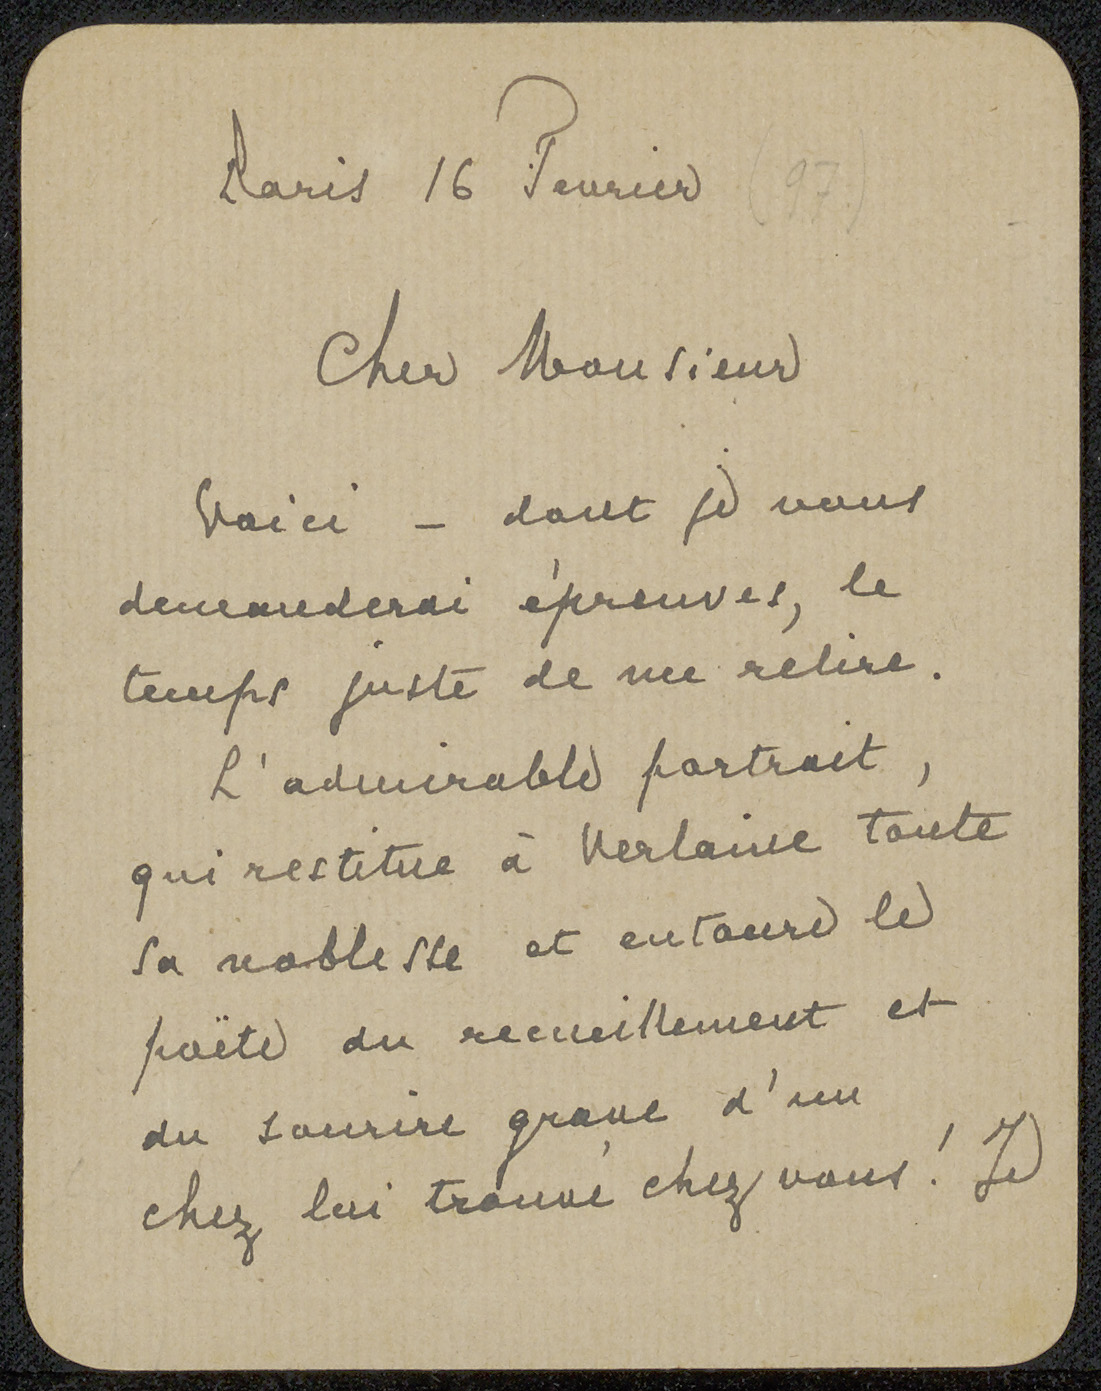 Paris 16 Fevrier (97)
Cher Monsieur
Voici – dont je vous
demanderai épreuves, le
temps juste de me relire.
L'admirable portrait,
qui restitue à Verlaine toute
sa noblesse et entoure le
poëte du recueillement et
du sourire grave d'un
chez lui trouvé chez vous! Je